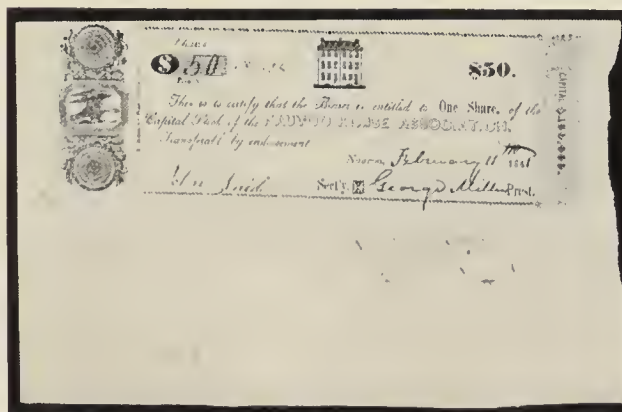 Share
$ 50
$50.
This is to certify that the Bearer is entitled to One Share, of the
Capital Stock of the NAUVOO HOUSE ASSOCIATION.
Transferable by indorsement
Nauvoo, February 11th 1841
Sect'y. George Miller Prest.
CAPITAL